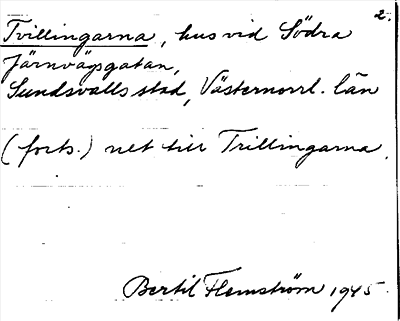 2.
Tvillingarna, hus vid Södra
Järnvägsgatan,
Sundsvalls stad, Västernorrl. län
(forts.) net till Trillingarna.
Bertil Flemström 1945